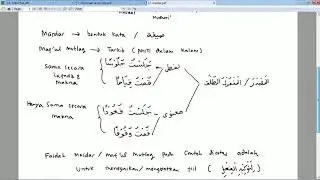 Mudhari'
Masdar → bentuk kata / صيغة
Maf'ul mutlaq → Tarkib (posisi dalam kalam)
Sama secara lafadz & makna
لفظي
جَلَسْتُ جُلُوْسًا
قُمْتُ قِيَامًا
المَصْدَر / المَفْعُوْل المُطْلَق
Hanya sama secara makna
معنوي
جَلَسْتُ قُعُوْدًا
قُمْتُ وُقُوْفًا
Faidah masdar / maf'ul mutlaq pada contoh diatas adalah
untuk menegaskan / menguatkan fi'il